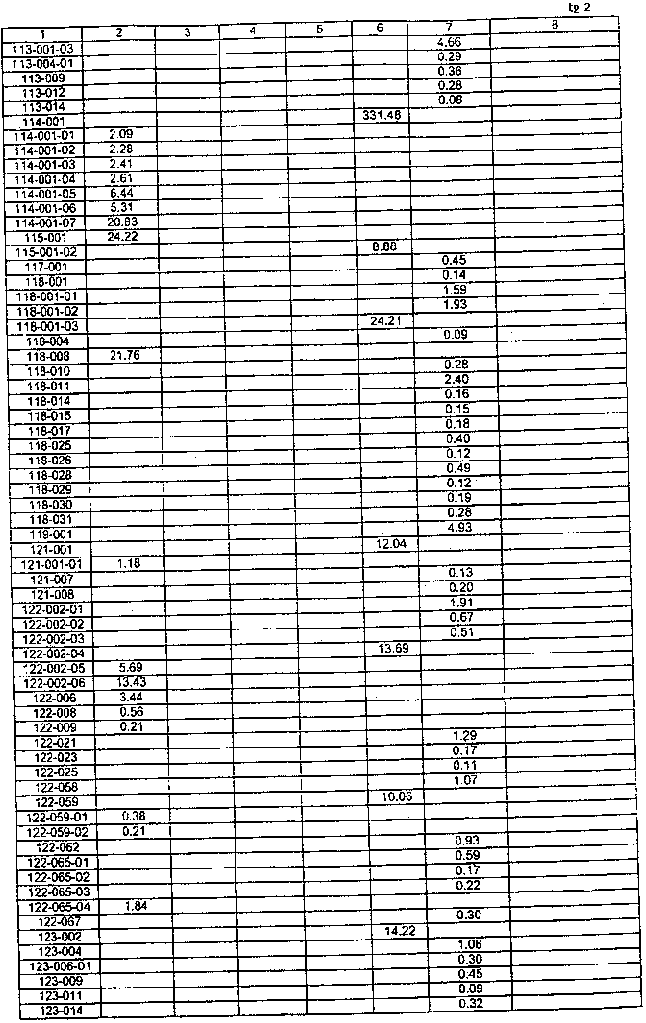 tp 2
1 2 3 4 5 6 7 8
113-001-03 4.66
113-004-01 0.29
113-009 0.36
113-012 0.28
113-014 0.06
114-001 331.48
114-001-01 2.09
114-001-02 2.28
114-001-03 2.41
114-001-04 2.61
114-001-05 6.44
114-001-06 5.31
114-001-07 20.83
115-001 24.22
115-001-02
117-001 0.45
118-001 0.14
118-001-01 1.59
118-001-02 1.93
118-001-03 24.21
118-004 0.09
118-008 21.76
118-010 0.28
118-011 2.40
118-014 0.16
118-015 0.15
118-017 0.18
118-025 0.40
118-026 0.12
118-028 0.49
118-029 0.12
118-030 0.19
118-031 0.28
119-001 4.93
121-001 12.04
121-001-01 1.18
121-007 0.13
121-008 0.20
122-002-01 1.91
122-002-02 0.67
122-002-03 0.51
122-002-04 13.69
122-002-05 5.69
122-002-06 13.43
122-006 3.44
122-008 0.56
122-009 0.21
122-021 1.29
122-023 0.17
122-025 0.11
122-058 1.07
122-059
122-059-01 0.38
122-059-02 0.21
122-062 0.93
122-065-01 0.59
122-065-02 0.17
122-065-03 0.22
122-065-04 1.84
122-067 0.30
123-002 14.22
123-004 1.06
123-006-01 0.30
123-009 0.45
123-011 0.09
123-014 0.32